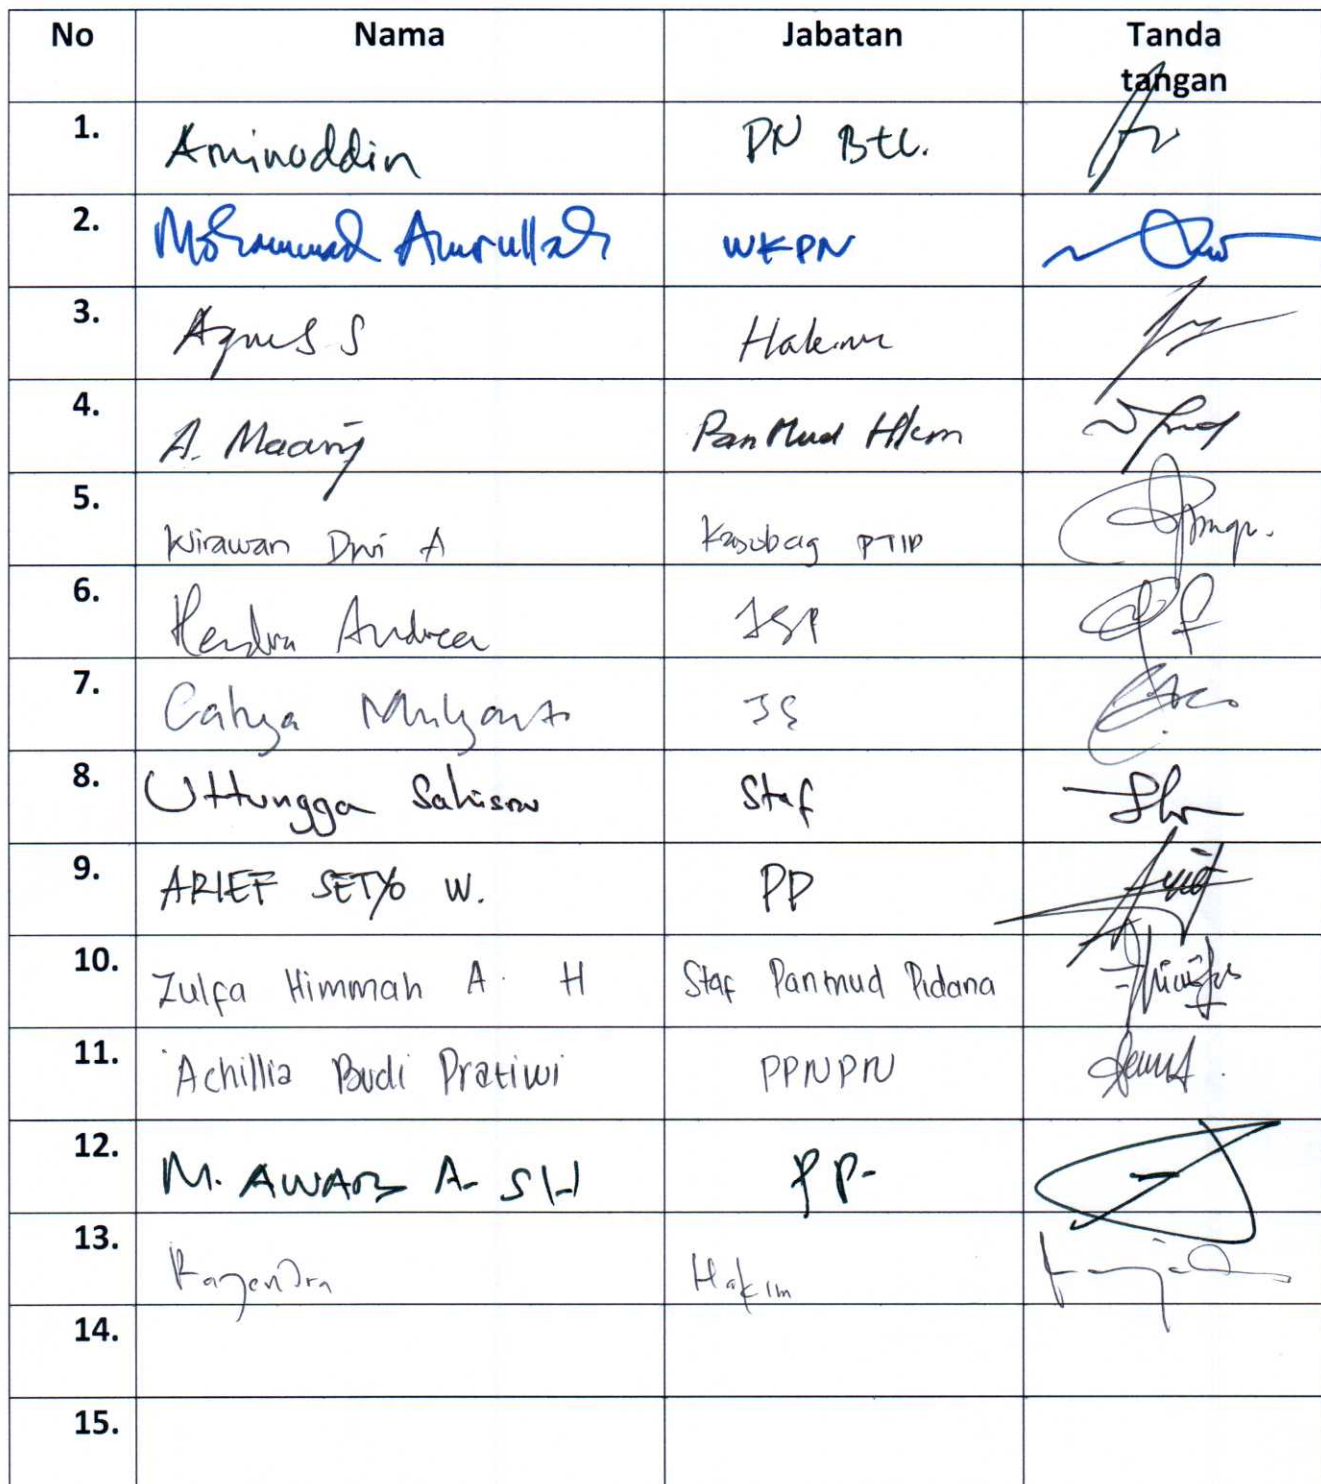 No Nama Jabatan Tanda tangan
1. Aminuddin PN Btl.
2. Mohammad Amrullah WKPN
3. Agus S Hakim
4. A. Maarif PanMud Hkm
5. Wirawan Dwi A Kasubag PTIP
6. Hendra Andrea JSP
7. Cahya Mulyanto JS
8. Uttungga Staf
9. ARIEF SETYO W. PP
10. Zulfa Himmah A. H Staf Panmud Pidana
11. Achillia Budi Pratiwi PPNPN
12. M. A. SH PP-
13. Hakim
14.
15.